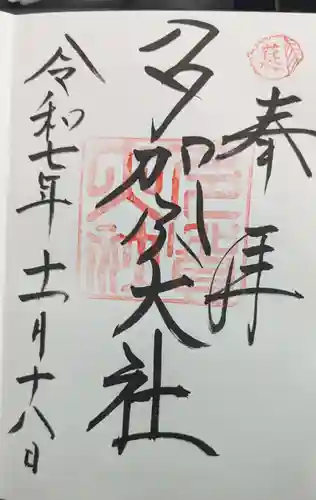 奉拝
多賀大社
令和七年十一月十八日